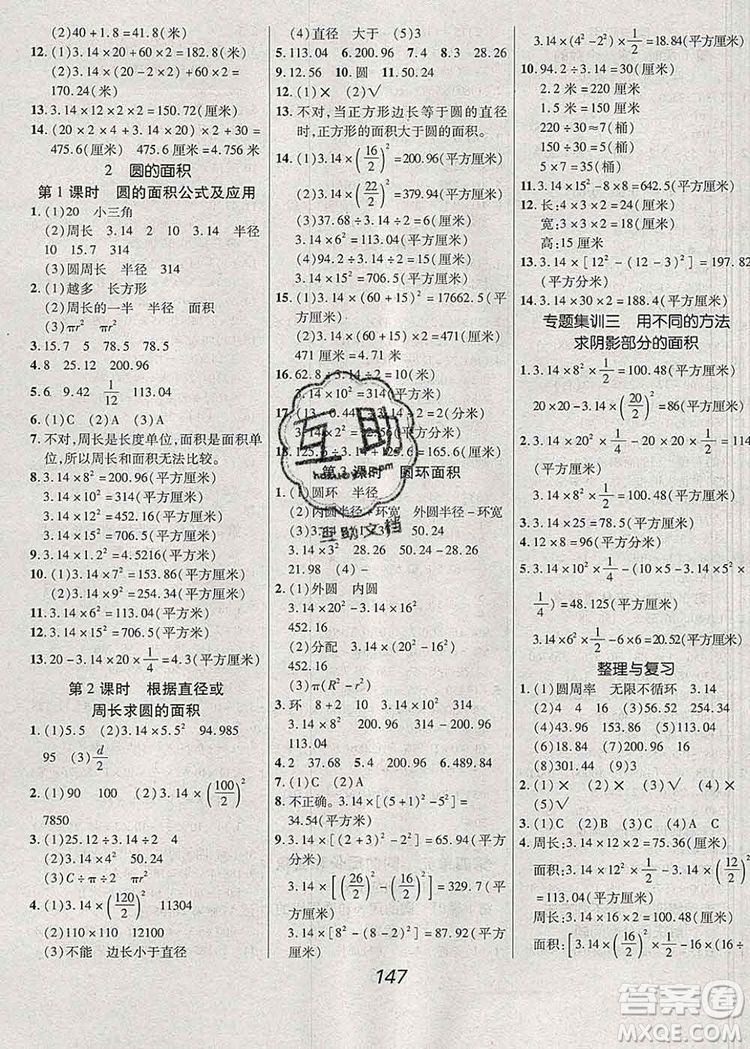 (2)40+1.8=41.8(米)
12.(1)3.14×20+60×2=182.8(米)
(2)3.14×(20-2)+60×2=
170.24(米)
13.3.14×12×2=150.72(厘米)
14.(20×2+3.14×20)×2+30=
475.6(厘米) 475.6厘米=4.756米
2 圆的面积
第1课时 圆的面积公式及应用
1.(1)20 小三角
(2)周长 3.14 314 半径
10 15.7 314
(3)圆周长 半径 半径
2.(1)越多 长方形
(2)周长的一半 半径 面积
(3)πr² πr²
3.15.7 78.5
4.8 25.12 200.96
5.6 9.42 1/12 113.04
6.(1)C (2)A (3)A
7.不对,周长是长度单位,面积是面积单
位,所以周长和面积无法比较。
8.3.14×8²=200.96(平方厘米)
3.14×10²=314(平方厘米)
3.14×12²=452.16(平方厘米)
3.14×15²=706.5(平方厘米)
9.3.14×1.2²=4.5216(平方米)
10.3.14×7²=153.86(平方厘米)
11.3.14×6²=113.04(平方米)
12.3.14×15²=706.5(平方米)
13.20-3.14×20×1/4=4.3(平方厘米)
第2课时 根据直径或
周长求圆的面积
1.(1)5.5 (2)3.14×5.5² 94.985
95 (3)d/2
2.(1)50 90 (2)3.14×(100/2)²
7850
3.(1)25.12÷3.14÷2 4
(2)3.14×4² 50.24
(3)C÷π÷2 πr²
4.(1)3.14×(120/2)² 11304
(2)110×110 12100
(3)不能 边长小于直径
(4)直径 大于 (5)3
5.113.04 6.200.96 7.4 8.28.26
9.12.56 10.圆 11.50.24
12.(1)× (2)√
13.不对,当正方形边长等于圆的直径
时,正方形的面积大于圆的面积。
14.(1)3.14×(16/2)²=200.96(平方厘米)
(2)3.14×(22/2)²=379.94(平方厘米)
(3)37.68÷3.14÷2=6(厘米)
3.14×6²=113.04(平方厘米)
(4)94.2÷3.14÷2=15(厘米)
3.14×15²=706.5(平方厘米)
15.(1)3.14×(60+15)²=17662.5(平
方厘米)
(2)3.14×(60+15)×2=471(厘米)
471厘米=4.71米
16.62.8÷3.14÷2=10(厘米)
3.14×10²=314(平方厘米)
17.(13-0.44)÷3.14÷2=2(分米)
3.14×2²=12.56(平方分米)
第3课时 圆环面积
1.(1)圆环 半径
(2)内圆半径+环宽 外圆半径-环宽
3.14×3² 28.26 50.24-28.26
21.98 (4)30
2.(1)外圆 内圆
3.14×20²-3.14×16²
452.16
(2)分配 3.14×(20²-16²)
452.16
(3)π(R²-r²)
3.环 8+2 10 3.14×10²-3.14×8²
113.04
4.2 37.68 5.200.96 6.489.84
7.(1)C (2)A
8.不正确。3.14×[(5+1)²-5²]=
34.54(平方厘米)
9.3.14×[(3+2)²-2²]=65.94(平方分米)
3.14×[(26/2)²-(16/2)²]=329.7(平
方厘米)
3.14×[8²-(8-2)²]=87.92(平方
厘米)
3.14×(4²-2²)×1/2=18.84(平方厘米)
10.94.2÷3.14=30(厘米)
2.2米=220厘米
220÷30≈7(桶)
150÷30=5(桶)
5×7=35(桶)
11.3.14×15²-8×8=642.5(平方厘米)
12.长:4×3×2=24(厘米)
宽:3×3×2=18(厘米)
高:15厘米
13.3.14×[12²-(12-3)²]=197.82
(平方分米)
14.3.14×30×2=188.4(厘米)
专题集训三 用不同的方法
求阴影部分的面积
1.3.14×8²×1/2=100.48(平方厘米)
20×20-3.14×(20/2)²=86(平方厘米)
3.3.14×25=78.5(平方厘米)
4.12×8=96(平方厘米)
1/4)=48.125(平方厘米)
3.14×6²×1/2-6×6=20.52(平方厘米)
整理与复习
1.(1)圆周率 无限不循环 3.14
(2)4 4 16 (3)56.52 254.34
(4)43.96 153.86 (5)12.56
(6)18.84 (7)50.24 30.96
(8)301.44 (9)3 6
2.(1)× (2)× (3)√ (4)×
(5)√
3.(1)C (2)C (3)C (4)B
4.周长:3.14×12×2=75.36(厘米)
=113.04(平方厘米)
周长:3.14×16×2=100.48(厘米)
147
互助
互助文档
答案圈
MXQE.COM